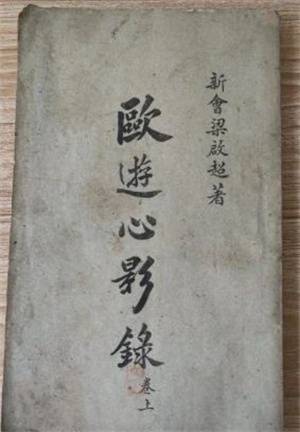 新會梁啟超著
歐遊心影錄
卷上